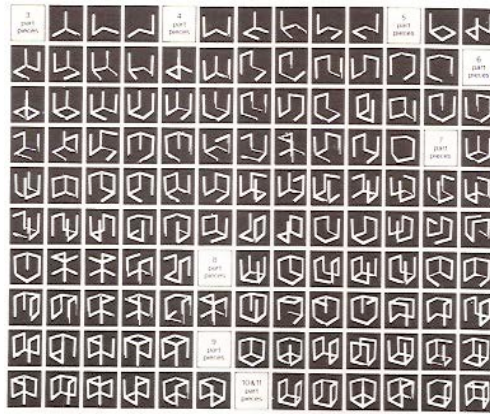 3
part
pieces
4
part
pieces
5
part
pieces
6
part
pieces
7
part
pieces
8
part
pieces
9
part
pieces
10&11
part
pieces